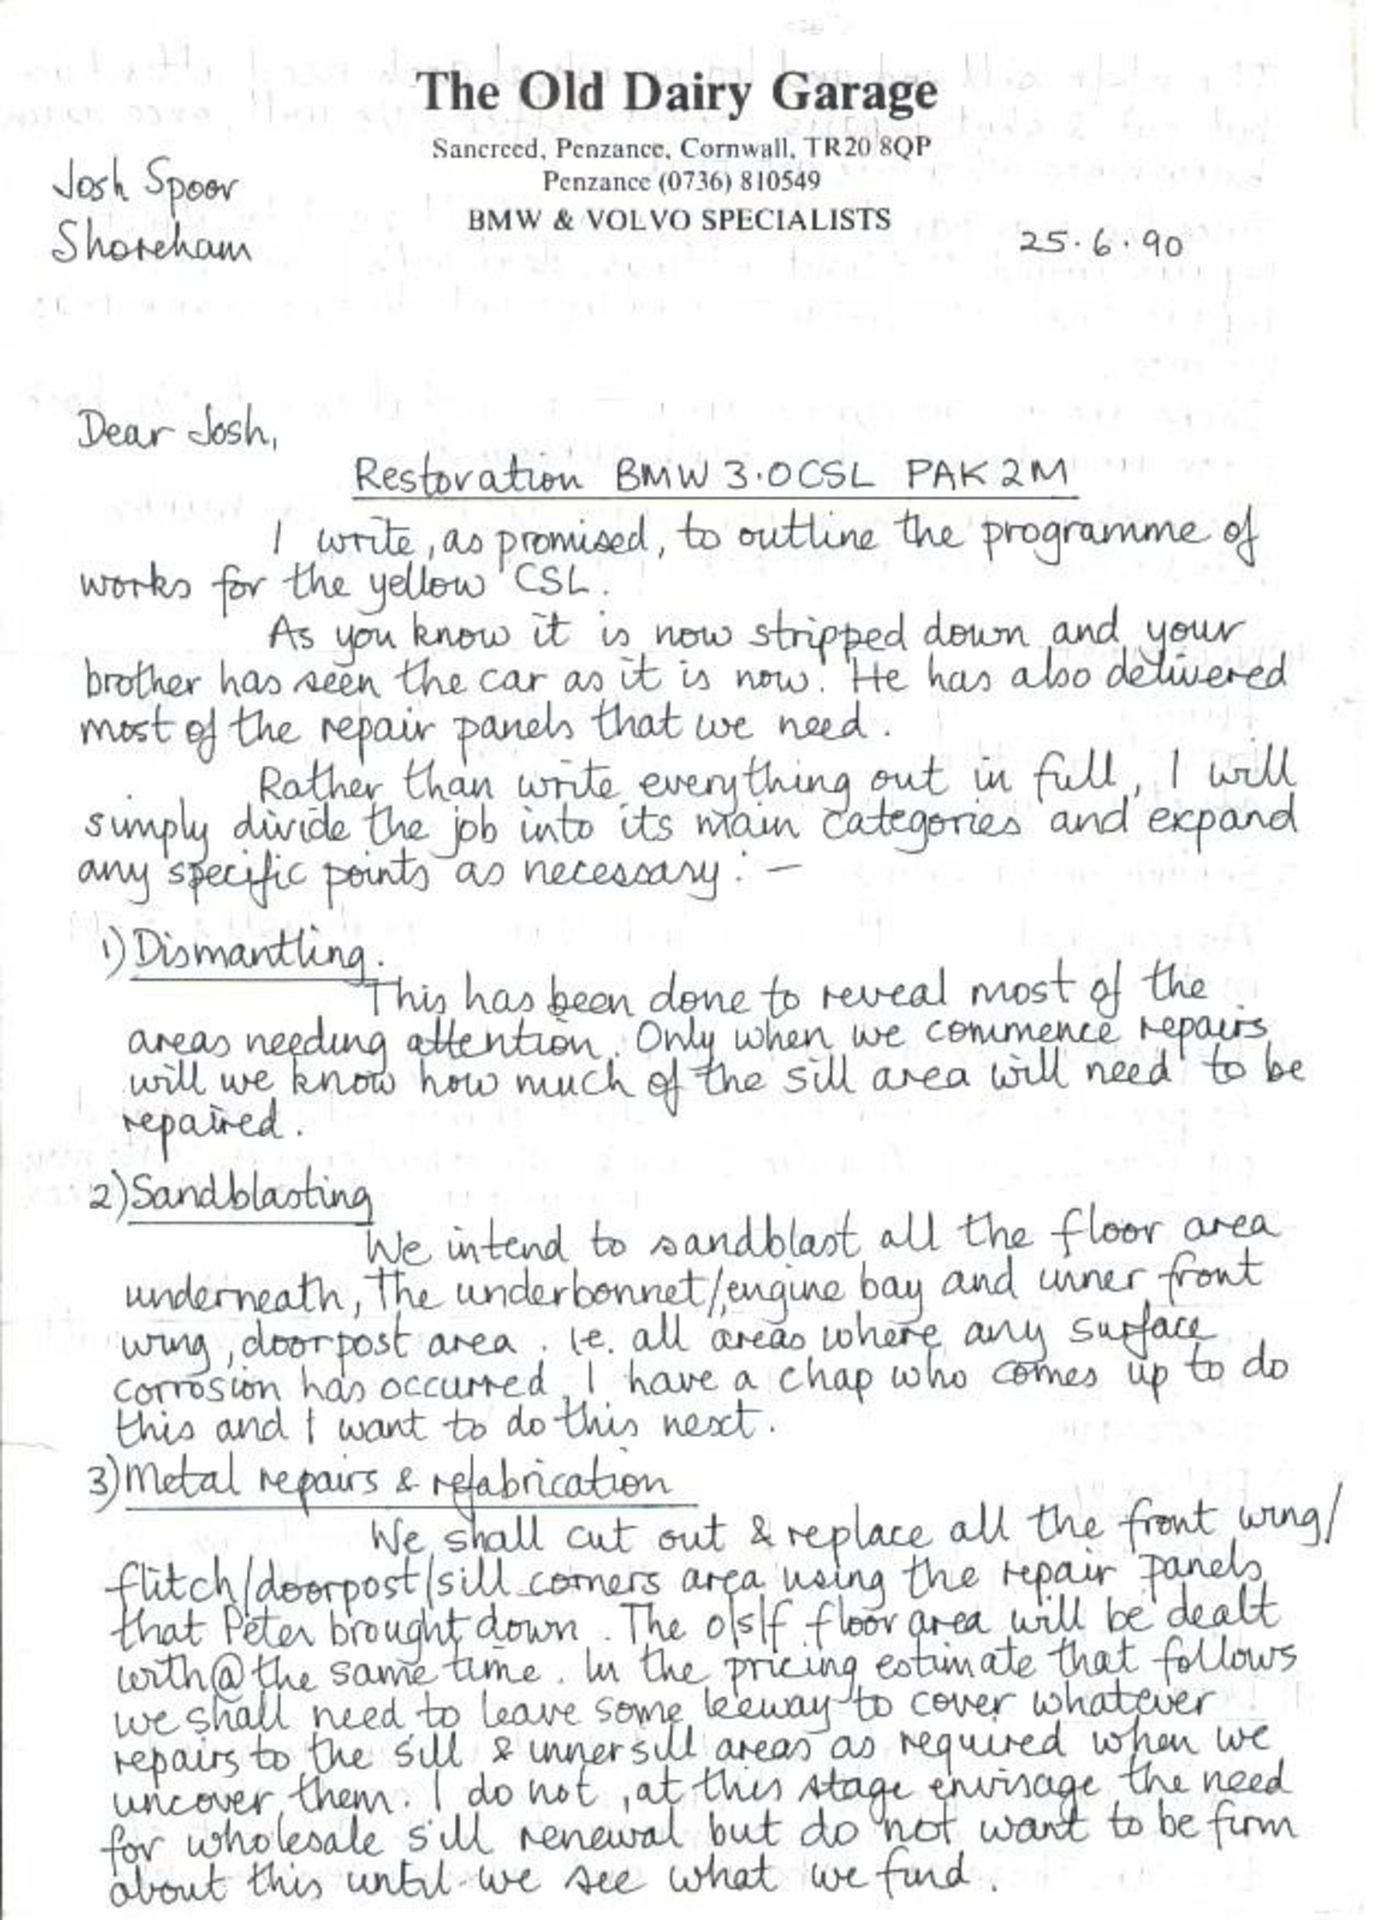 The Old Dairy Garage
Sancreed, Penzance, Cornwall, TR20 8QP
Penzance (0736) 810549
BMW & VOLVO SPECIALISTS
Josh Spoor
Shoreham
25.6.90
Dear Josh,
Restoration BMW 3.0CSL PAK 2M
I write, as promised, to outline the programme of
works for the yellow CSL.
As you know it is now stripped down and your
brother has seen the car as it is now. He has also delivered
most of the repair panels that we need.
Rather than write everything out in full, I will
simply divide the job into its main categories and expand
any specific points as necessary:-
1) Dismantling.
This has been done to reveal most of the
areas needing attention. Only when we commence repairs
will we know how much of the sill area will need to be
repaired.
2) Sandblasting
We intend to sandblast all the floor area
underneath, the underbonnet/engine bay and inner front
wing, doorpost area. ie. all areas where any surface
corrosion has occurred. I have a chap who comes up to do
this and I want to do this next.
3) Metal repairs & refabrication
We shall cut out & replace all the front wing/
flitch/doorpost/sill corners area using the repair panels
that Peter brought down. The o/s/f floor area will be dealt
with @ the same time. In the pricing estimate that follows
we shall need to leave some leeway to cover whatever
repairs to the sill & inner sill areas as required when we
uncover them. I do not, at this stage envisage the need
for wholesale sill renewal but do not want to be firm
about this until we see what we find.